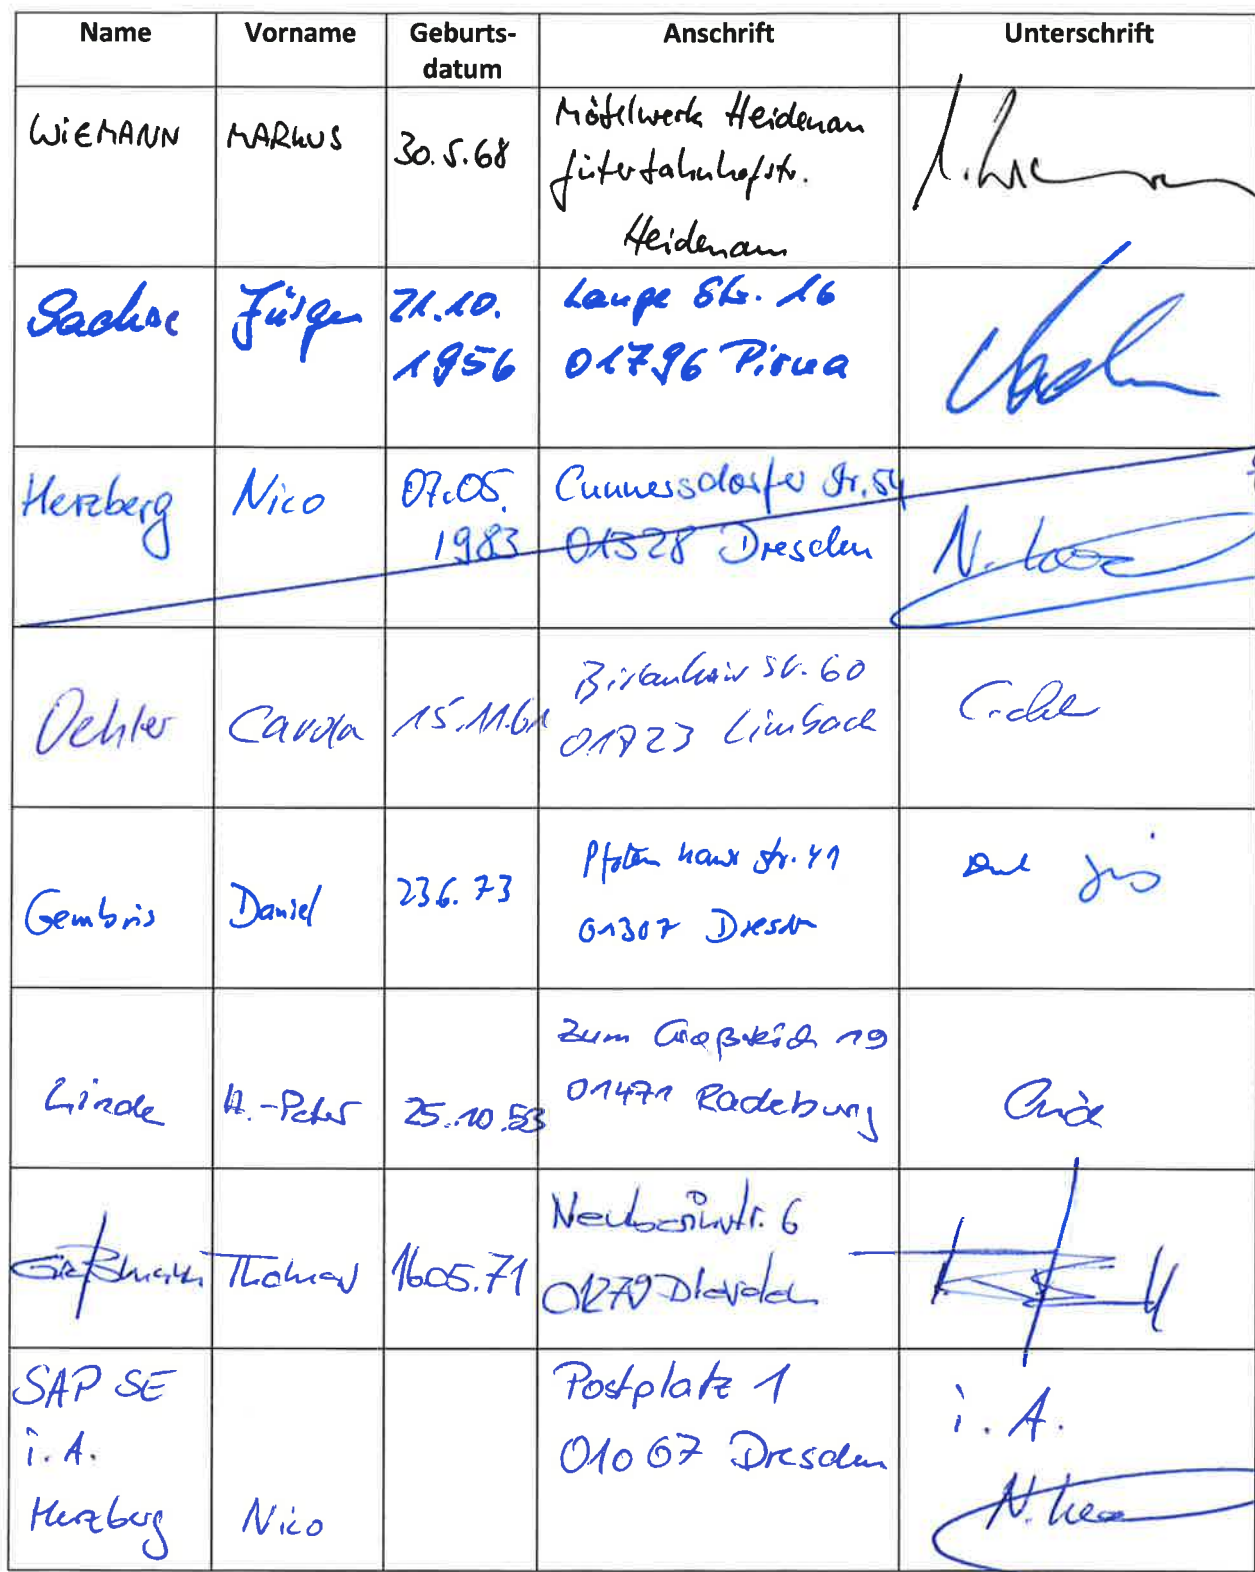 Name Vorname Geburts- Anschrift Unterschrift
datum
WIEMANN MARKUS 30.5.68 Möbelwerk Heidenau
Güterbahnhofstr.
Heidenau
Sachse Jürgen 21.10. Lange Str. 16
1956 01796 Pirna
Herzberg Nico 07.05. Cunnersdorfer Str. 54
1983 01328 Dresden
Oehler Carola 15.11.61 Birkenhainer Str. 60
01723 Limbach
Gembris Daniel 23.6.73 Pfotenhauer Str. 41
01307 Dresden
Linde H.-Peter 25.10.53 Zum Großteich 19
01471 Radeburg
Großmann Thomas 16.05.71 6
01279 Dresden
SAP SE Postplatz 1 i. A.
i. A. 01067 Dresden
Herzberg Nico